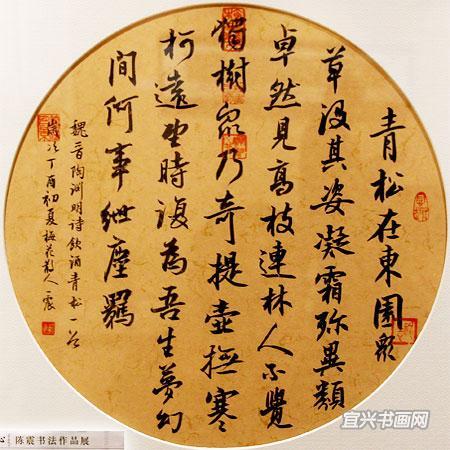 青松在東園眾
草沒其姿凝霜殄異類
卓然見高枝連林人不覺
獨樹眾乃奇提壺撫寒
柯遠望時復為吾生夢幻
間何事紲塵羈
魏晉陶淵明詩飲酒青松一首
歲次丁酉初夏梅花散人震
陈震书法作品展
宜兴书画网